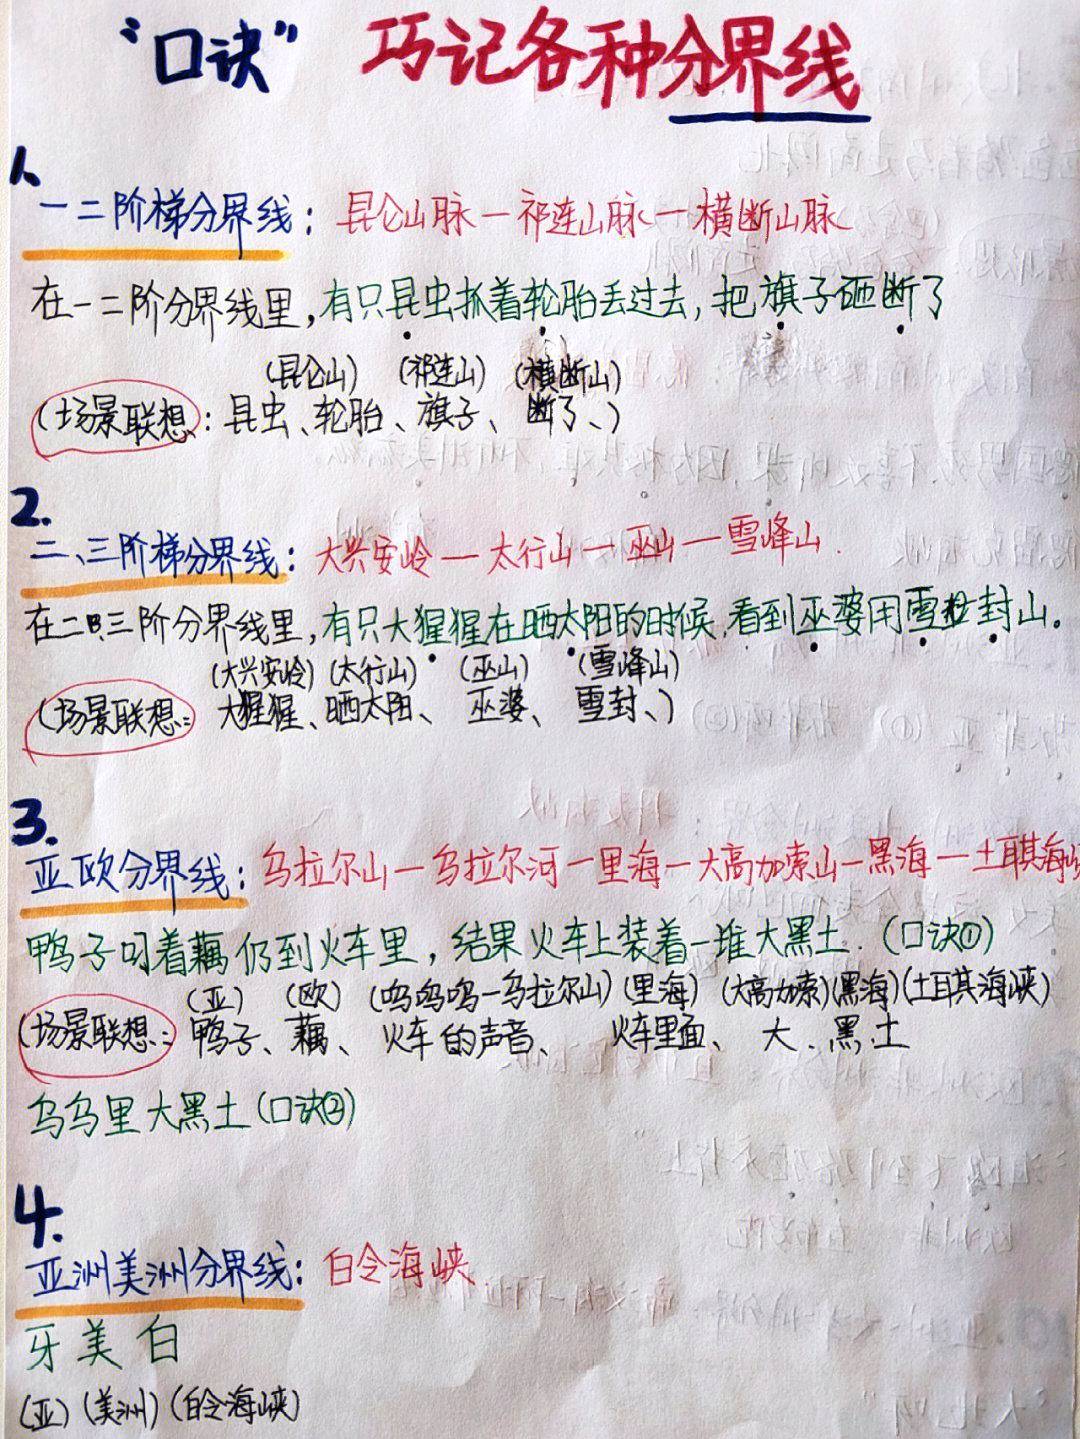 “口诀” 巧记各种分界线
1、
一二阶梯分界线：昆仑山脉—祁连山脉—横断山脉
在一二阶分界线里，有只昆虫抓着轮胎丢过去，把旗子砸断了
(昆仑山) (祁连山) (横断山)
(场景联想：昆虫、轮胎、旗子、断了、)
2.
二、三阶梯分界线：大兴安岭—太行山—巫山—雪峰山.
在二、三阶分界线里，有只大猩猩在晒太阳的时候，看到巫婆用雪粒封山。
(大兴安岭) (太行山) (巫山) (雪峰山)
(场景联想：大猩猩、晒太阳、巫婆、雪封、)
3.
亚欧分界线：乌拉尔山—乌拉尔河—里海—大高加索山—黑海—土耳其海峡
鸭子叼着藕仍到火车里，结果火车上装着一堆大黑土.(口诀①)
(亚) (欧) (呜呜呜—乌拉尔山) (里海) (大高加索) (黑海) (土耳其海峡)
(场景联想：鸭子、藕、火车的声音、火车里面、大、黑、土
乌乌里大黑土(口诀②)
4.
亚洲美洲分界线：白令海峡
牙美白
(亚) (美洲) (白令海峡)